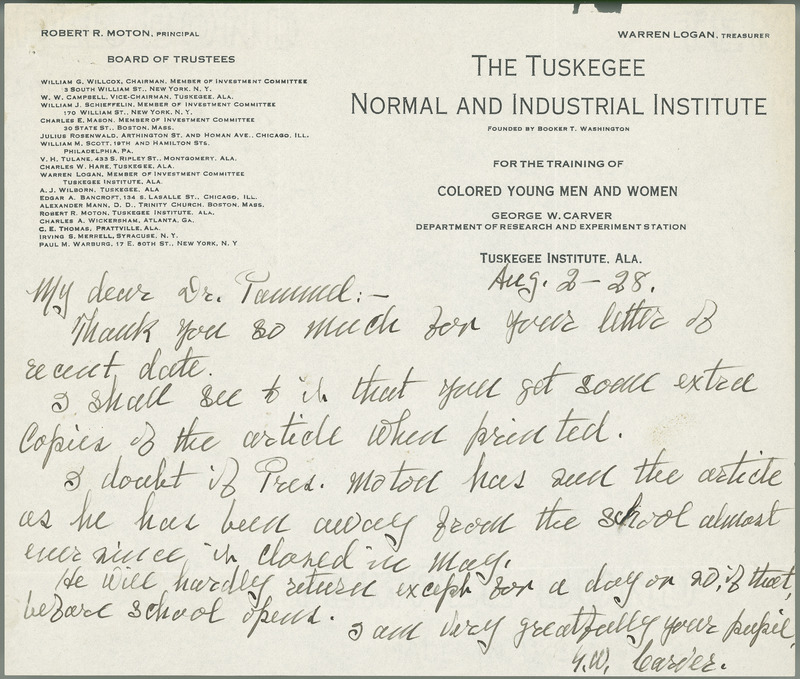 ROBERT R. MOTON, PRINCIPAL
WARREN LOGAN, TREASURER
BOARD OF TRUSTEES
WILLIAM G. WILLCOX, CHAIRMAN, MEMBER OF INVESTMENT COMMITTEE
3 SOUTH WILLIAM ST., NEW YORK, N. Y.
W. W. CAMPBELL, VICE-CHAIRMAN, TUSKEGEE, ALA.
WILLIAM J. SCHIEFFELIN, MEMBER OF INVESTMENT COMMITTEE
170 WILLIAM ST., NEW YORK, N. Y.
CHARLES E. MASON, MEMBER OF INVESTMENT COMMITTEE
30 STATE ST., BOSTON, MASS.
JULIUS ROSENWALD, ARTHINGTON ST. AND HOMAN AVE., CHICAGO, ILL.
WILLIAM M. SCOTT, 18TH AND HAMILTON STS.
PHILADELPHIA, PA.
V. H. TULANE, 433 S. RIPLEY ST., MONTGOMERY, ALA.
CHARLES W. HARE, TUSKEGEE, ALA.
WARREN LOGAN, MEMBER OF INVESTMENT COMMITTEE
TUSKEGEE INSTITUTE, ALA.
A. J. WILBORN, TUSKEGEE, ALA
EDGAR A. BANCROFT, 134 S. LASALLE ST., CHICAGO, ILL.
ALEXANDER MANN, D. D., TRINITY CHURCH, BOSTON, MASS.
ROBERT R. MOTON, TUSKEGEE INSTITUTE, ALA.
CHARLES A. WICKERSHAM, ATLANTA, GA.
C. E. THOMAS, PRATTVILLE, ALA.
IRVING S. MERRELL, SYRACUSE, N. Y.
PAUL M. WARBURG, 17 E. 80TH ST., NEW YORK, N. Y
THE TUSKEGEE
NORMAL AND INDUSTRIAL INSTITUTE
FOUNDED BY BOOKER T. WASHINGTON
FOR THE TRAINING OF
COLORED YOUNG MEN AND WOMEN
GEORGE W. CARVER
DEPARTMENT OF RESEARCH AND EXPERIMENT STATION
TUSKEGEE INSTITUTE, ALA.
Aug. 2-28.
My dear Dr. Pammel:-
Thank you so much for your letter of
recent date.
I shall see to it that you get some extra
Copies of the article when printed.
I doubt if Pres. Moton has seen the article
as he has been away from the school almost
ever since it closed in May.
He will hardly return except for a day or so, if that,
before school opens.
I am very greatfully your pupil,
G.W. Carver.